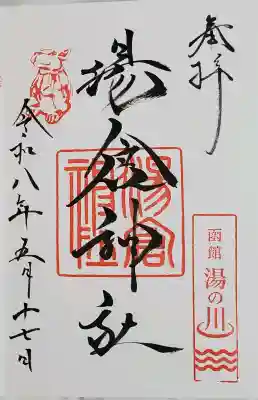 奉拝
函館
湯の川
湯倉神社
湯倉神社
令和八年五月十七日